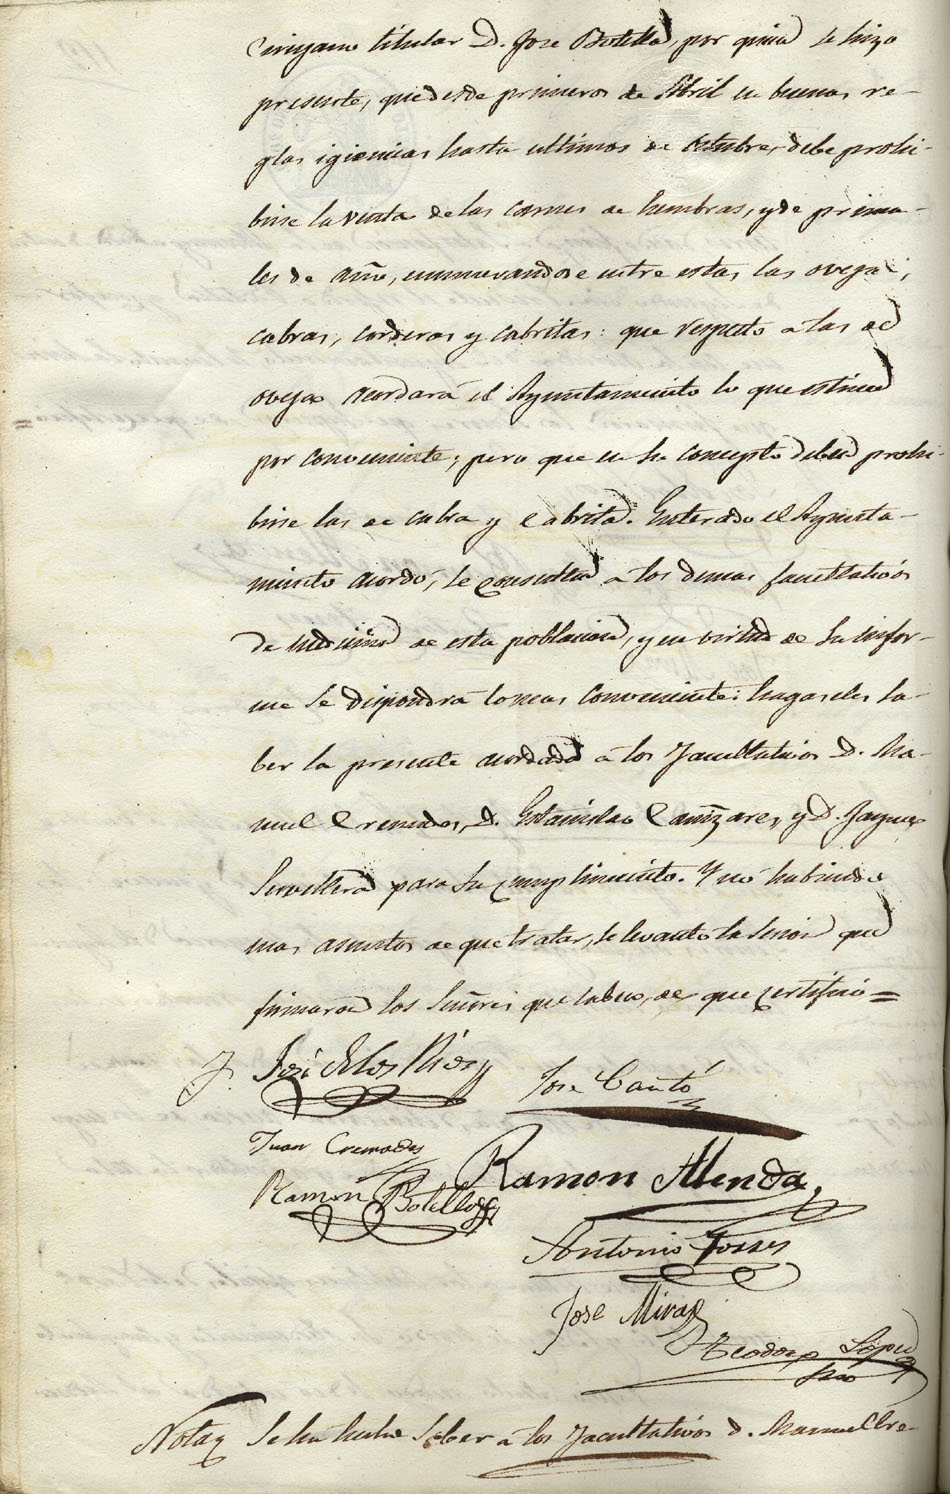 Cirujano titular D. Jose Botella, por quien se hizo
presente, que desde primeros de Abril en buenas re-
glas igienicas hasta ultimos de Octubre, debe prohi-
birse la venta de las carnes de hembras, y de prima-
les de año, enumerandose entre estas, las ovejas,
cabras, corderas y cabritas: que respecto a las de
oveja acordará el Ayuntamiento lo que estime
por conveniente, pero que en su concepto deben prohi-
birse las de cabra y cabrita. Enterado el Ayunta-
miento acordó, se consulten a los demas facultativos
de medicina de esta poblacion, y en virtud de su infor-
me se dispondrá lo mas conveniente: hagaseles sa-
ber la presente acordada a los Facultativos D. Ma-
nuel Cremades, D. Estanislao Cañizares, y D. Jayme
Servillera para su cumplimiento. Y no habiendo
mas asuntos de que tratar, se levantó la sesion que
firmaron los Señores que saben, de que certifico=
José de los Rios
Jose Cantó
Juan Cremades
Ramon Allenda
Ramon Botella
Antonio Torres
Jose Mira
Teodoro Lopez
Srio
Nota Se ha hecho saber a los Facultativos D. Manuel Cre-